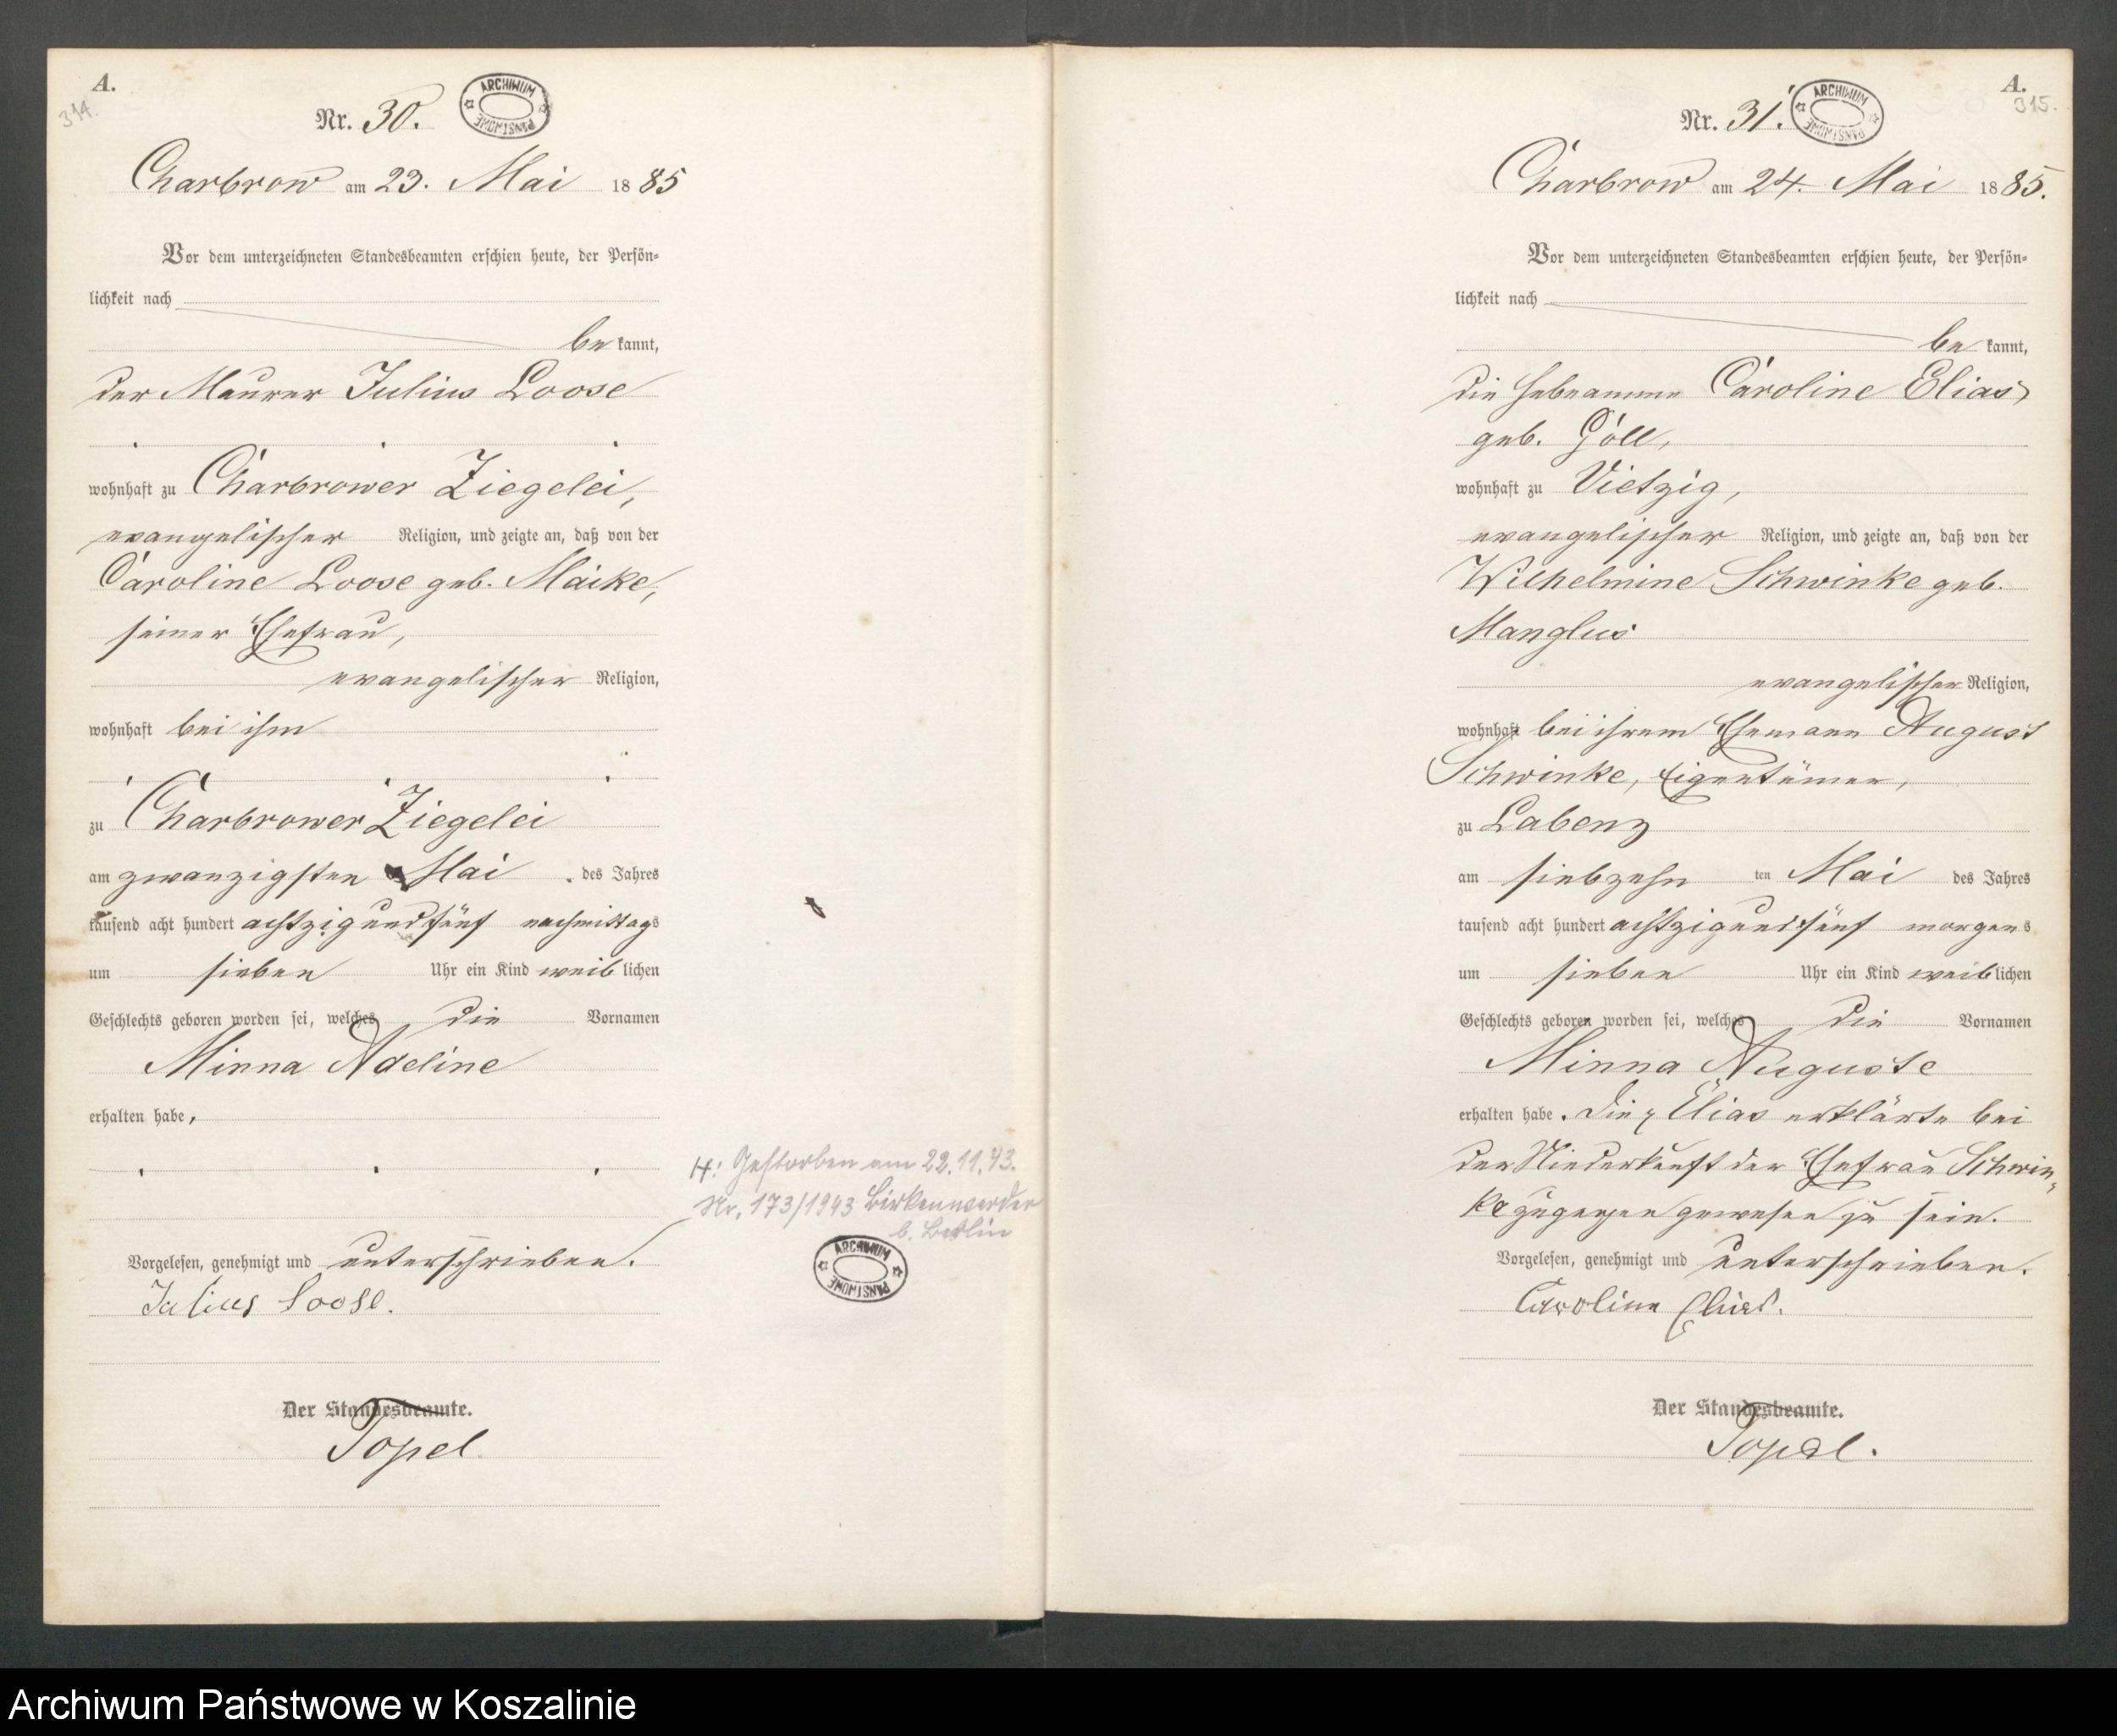 A.
314.
Nr. 30.
ARCHIWUM PAŃSTWOWE
Charbrow am 23. Mai 1885
Vor dem unterzeichneten Standesbeamten erschien heute, der Persön-
lichkeit nach
be kannt,
der Maurer Julius Loose
wohnhaft zu Charbrower Ziegelei,
evangelischer Religion, und zeigte an, daß von der
Caroline Loose geb. Maike,
seiner Ehefrau,
evangelischer Religion,
wohnhaft bei ihm
zu Charbrower Ziegelei
am zwanzigsten Mai des Jahres
tausend acht hundert achtzig und fünf nachmittags
um sieben Uhr ein Kind weiblichen
Geschlechts geboren worden sei, welches die Vornamen
Minna Adeline
erhalten habe,
Vorgelesen, genehmigt und unterschrieben.
Julius Loose.
Der Standesbeamte.
Topel.
H: Gestorben am 22.11.43.
Nr. 173/1943 Birkenwerder
b. Berlin
ARCHIWUM PAŃSTWOWE
A.
315.
Nr. 31.
ARCHIWUM PAŃSTWOWE
Charbrow am 24. Mai 1885.
Vor dem unterzeichneten Standesbeamten erschien heute, der Persön-
lichkeit nach
be kannt,
die Hebeamme Caroline Elias,
geb. Göll,
wohnhaft zu Vietzig,
evangelischer Religion, und zeigte an, daß von der
Wilhelmine Schwinke geb.
Manglus
evangelischer Religion,
wohnhaft bei ihrem Ehemann August
Schwinke, Eigentümer,
zu Labenz
am siebzehn ten Mai des Jahres
tausend acht hundert achtzig und fünf morgens
um sieben Uhr ein Kind weiblichen
Geschlechts geboren worden sei, welches die Vornamen
Minna Auguste
erhalten habe. Die Elias erklärte bei
der Niederkunft der Ehefrau Schwin-
ke zugegen gewesen zu sein.
Vorgelesen, genehmigt und unterschrieben.
Caroline Elias.
Der Standesbeamte.
Topel.
Archiwum Państwowe w Koszalinie